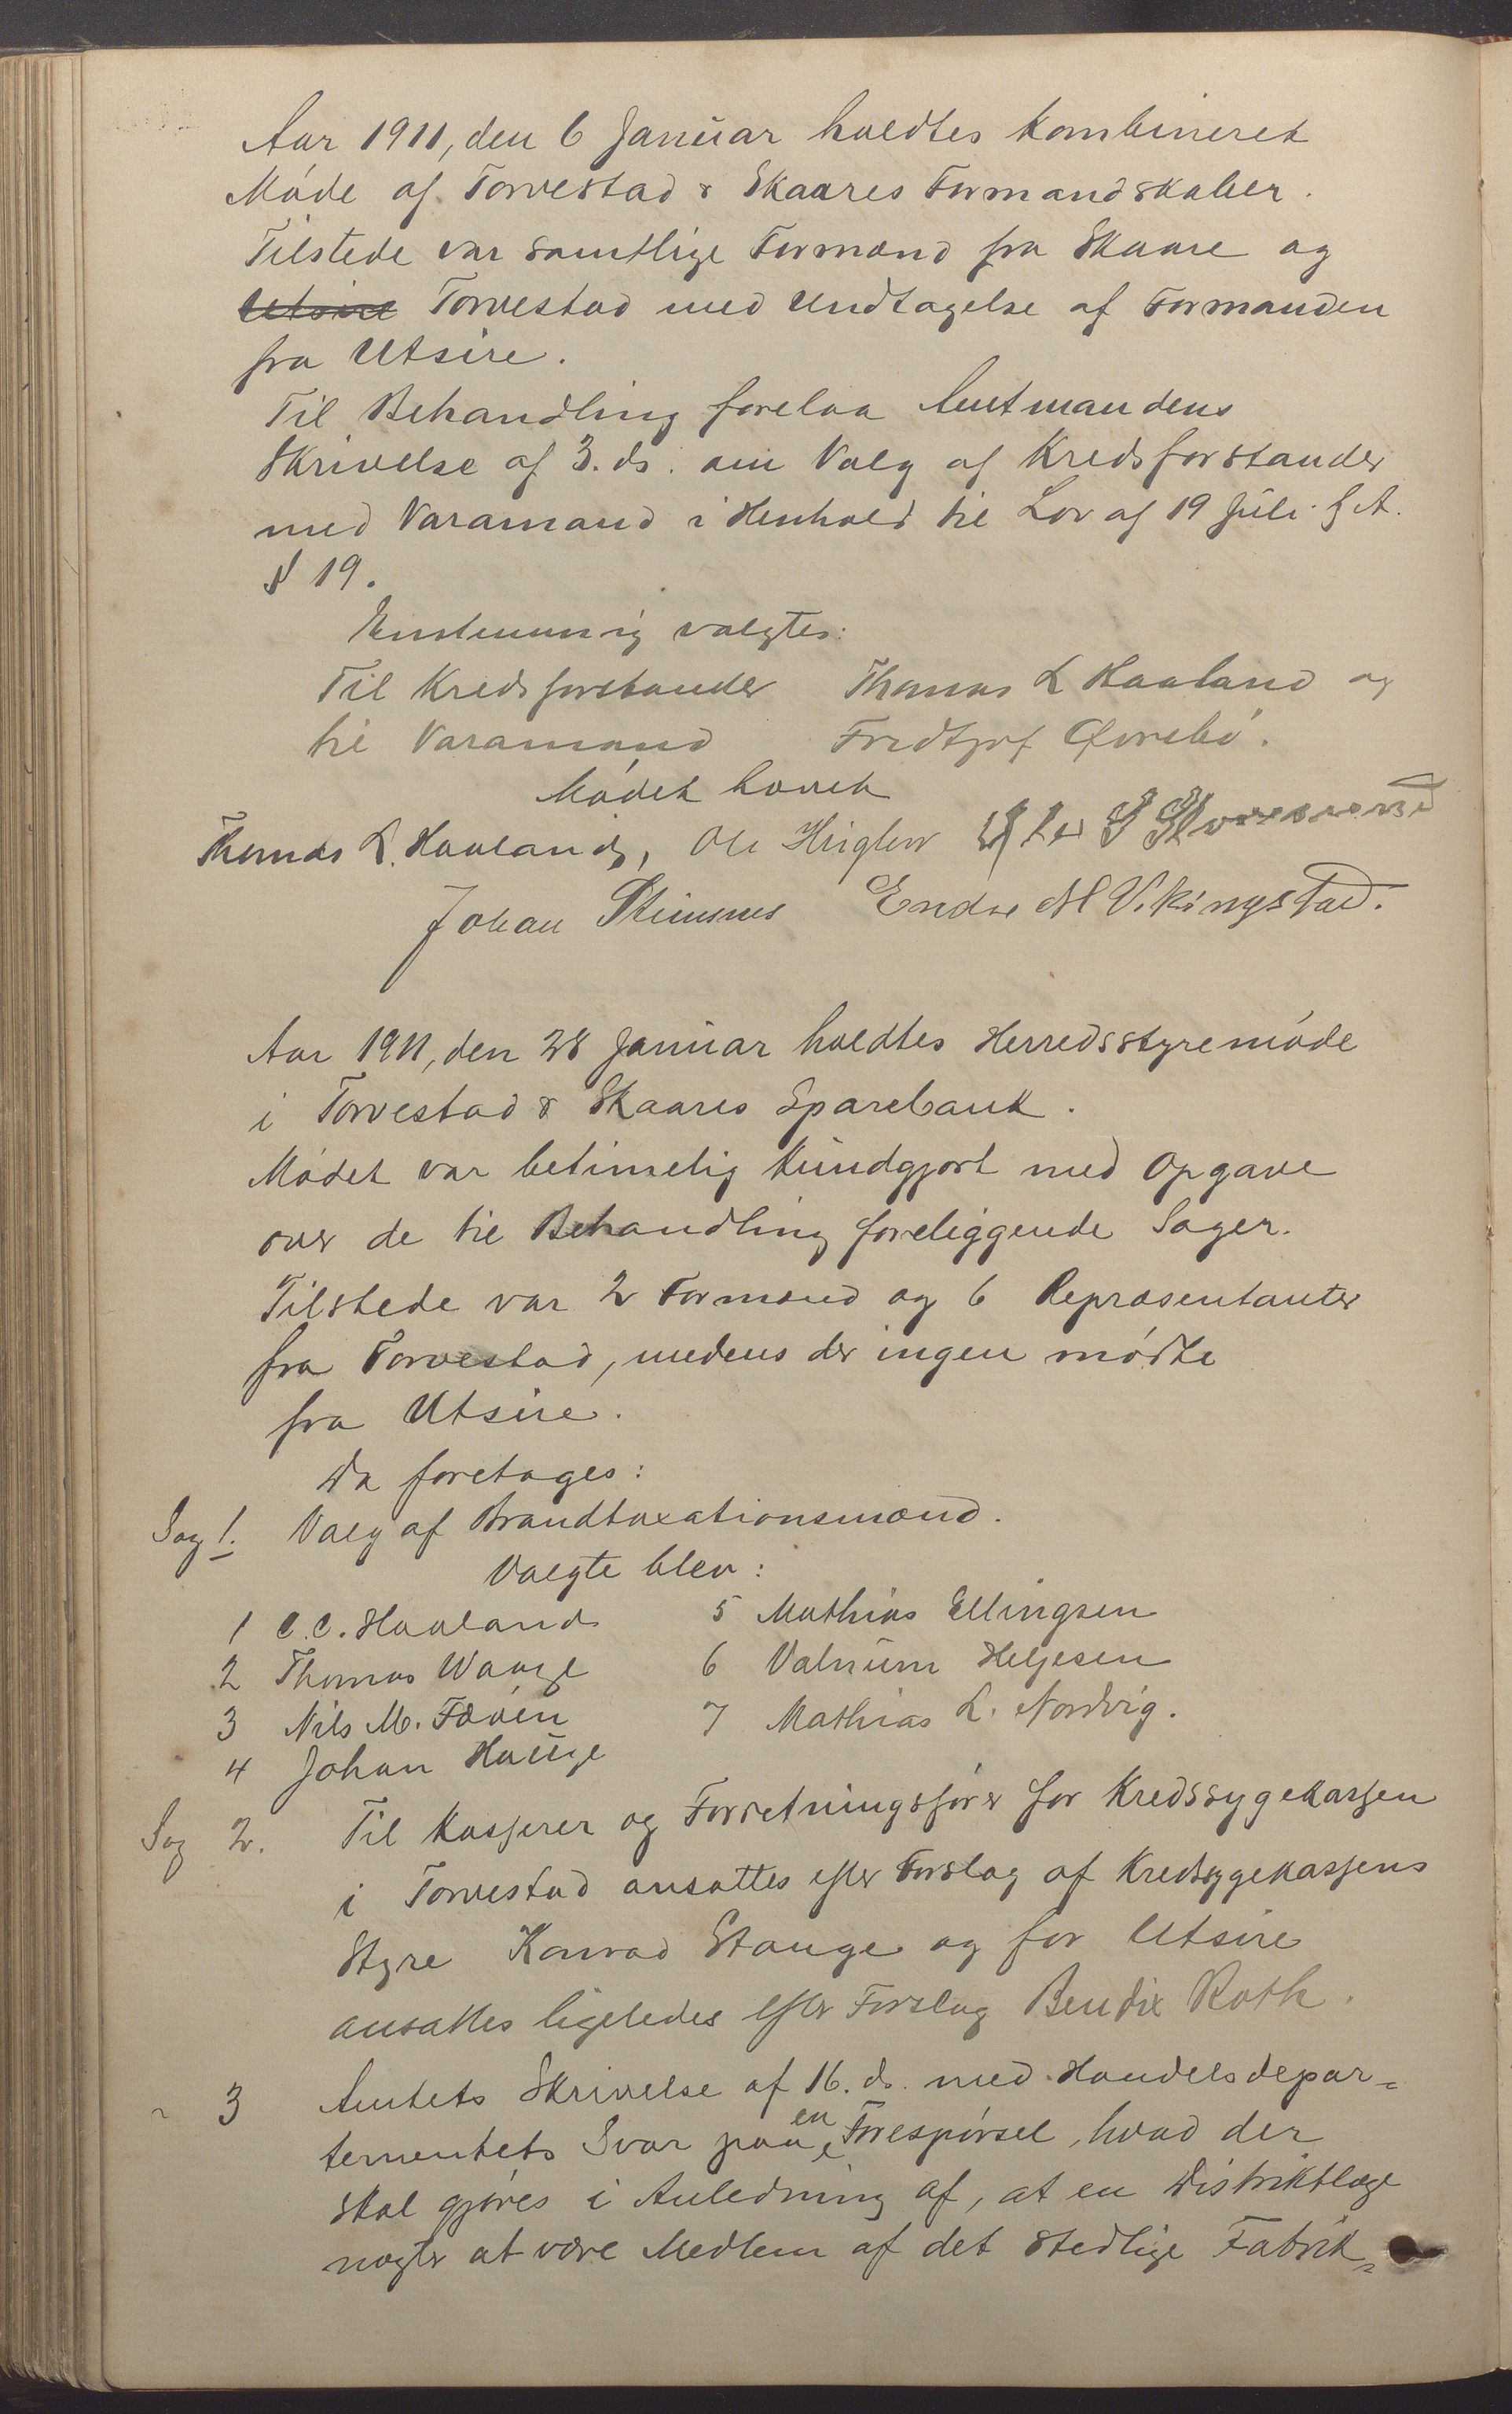 Aar 1911, den 6 Januar holdtes kombineret
Møde af Torvestad & Skaares Formandskaber.
Tilstede var samtlige Formænd fra Skaare og
Utsire Torvestad med Undtagelse af Formanden
fra Utsire.
Til Behandling forelaa Amtmandens
Skrivelse af 3. ds. om Valg af Kredsforstander
med Varamand i Henhold til Lov af 19 Juli f. A.
§ 19.
Enstemmig valgtes:
Til Kredsforstander Thomas L Haaland og
til Varamand Fredtjof Øvrebø.
Mødet hævet
Thomas L. Haaland, Ole
Johan Stensnes Endre M Vikingstad.
Aar 1911, den 28 Januar holdtes Herredsstyremøde
i Torvestad & Skaares Sparebank.
Mødet var betimelig kundgjort med Opgave
over de til Behandling foreliggende Sager.
Tilstede var 2 Formænd og 6 Repræsentanter
fra Torvestad, medens der ingen mødte
fra Utsire.
Da foretoges:
Sag 1. Valg af Brandtaxationsmænd.
Valgte blev:
1 C. C. Haaland 5 Mathias Ellingsen
2 Thomas Waage 6 Valnum Helgesen
3 Nils M. Fæøen 7 Mathias L. Nordvig.
4 Johan Hauge
Sag 2. Til Kasserer og Forretningsfører for Kredssygekassen
i Torvestad ansattes efter Forslag af Kredssygekassens
Styre Konrad Stange og for Utsire
ansattes ligeledes efter Forslag Bendix Roth.
" 3 Amtets Skrivelse af 16. ds. med Handelsdepar=
tementets Svar paa en Forespørsel, hvad der
skal gjøres i Anledning af, at en Distriktslæge
nægter at være Medlem af det stedlige Fabrik=